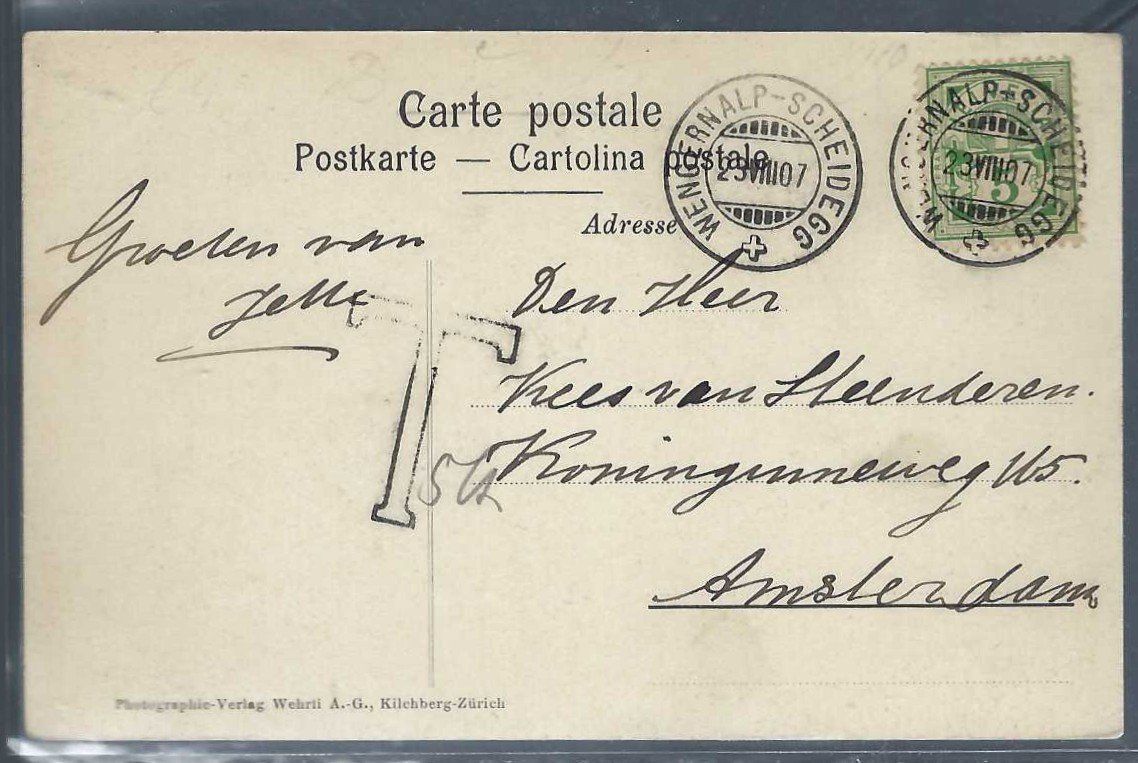 Carte postale
Postkarte — Cartolina postale
Adresse
WENGERNALP-SCHEIDEGG
23 VIII 07
WENGERNALP-SCHEIDEGG
23 VIII 07
5
Groeten van
Den Heer
Kees van Steenderen.
Koninginneweg 115.
Amsterdam
T
Photographie-Verlag Wehrli A.-G., Kilchberg-Zürich